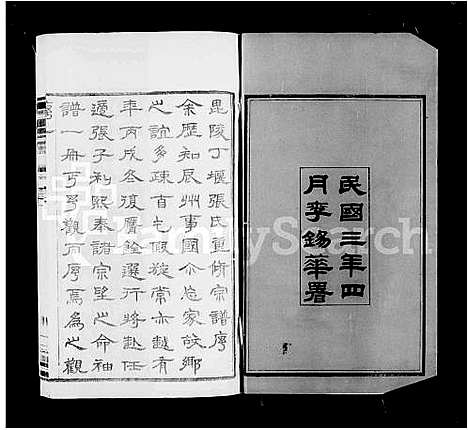 民國三年四
月李錫華署
毘陵丁堰張氏重修宗譜序
余歷知辰州事國尒忘家故鄉
之誼多疎首丁假旋常亦越有
年丙戌冬復膺銓選行將赴任
適張子利熙奉諸宗望之命袖
譜一冊丐予觀而序焉為之觀
FamilySearch